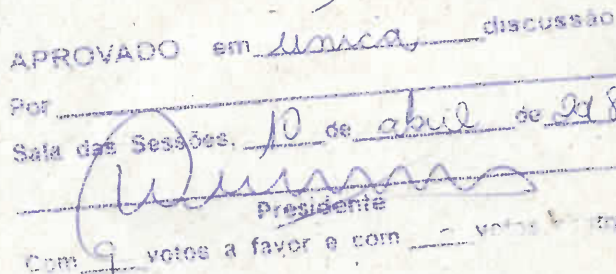 APROVADO em única, discussão
Por
Sala das Sessões, 10 de abril de
Presidente
Com 9 votos a favor e com votos